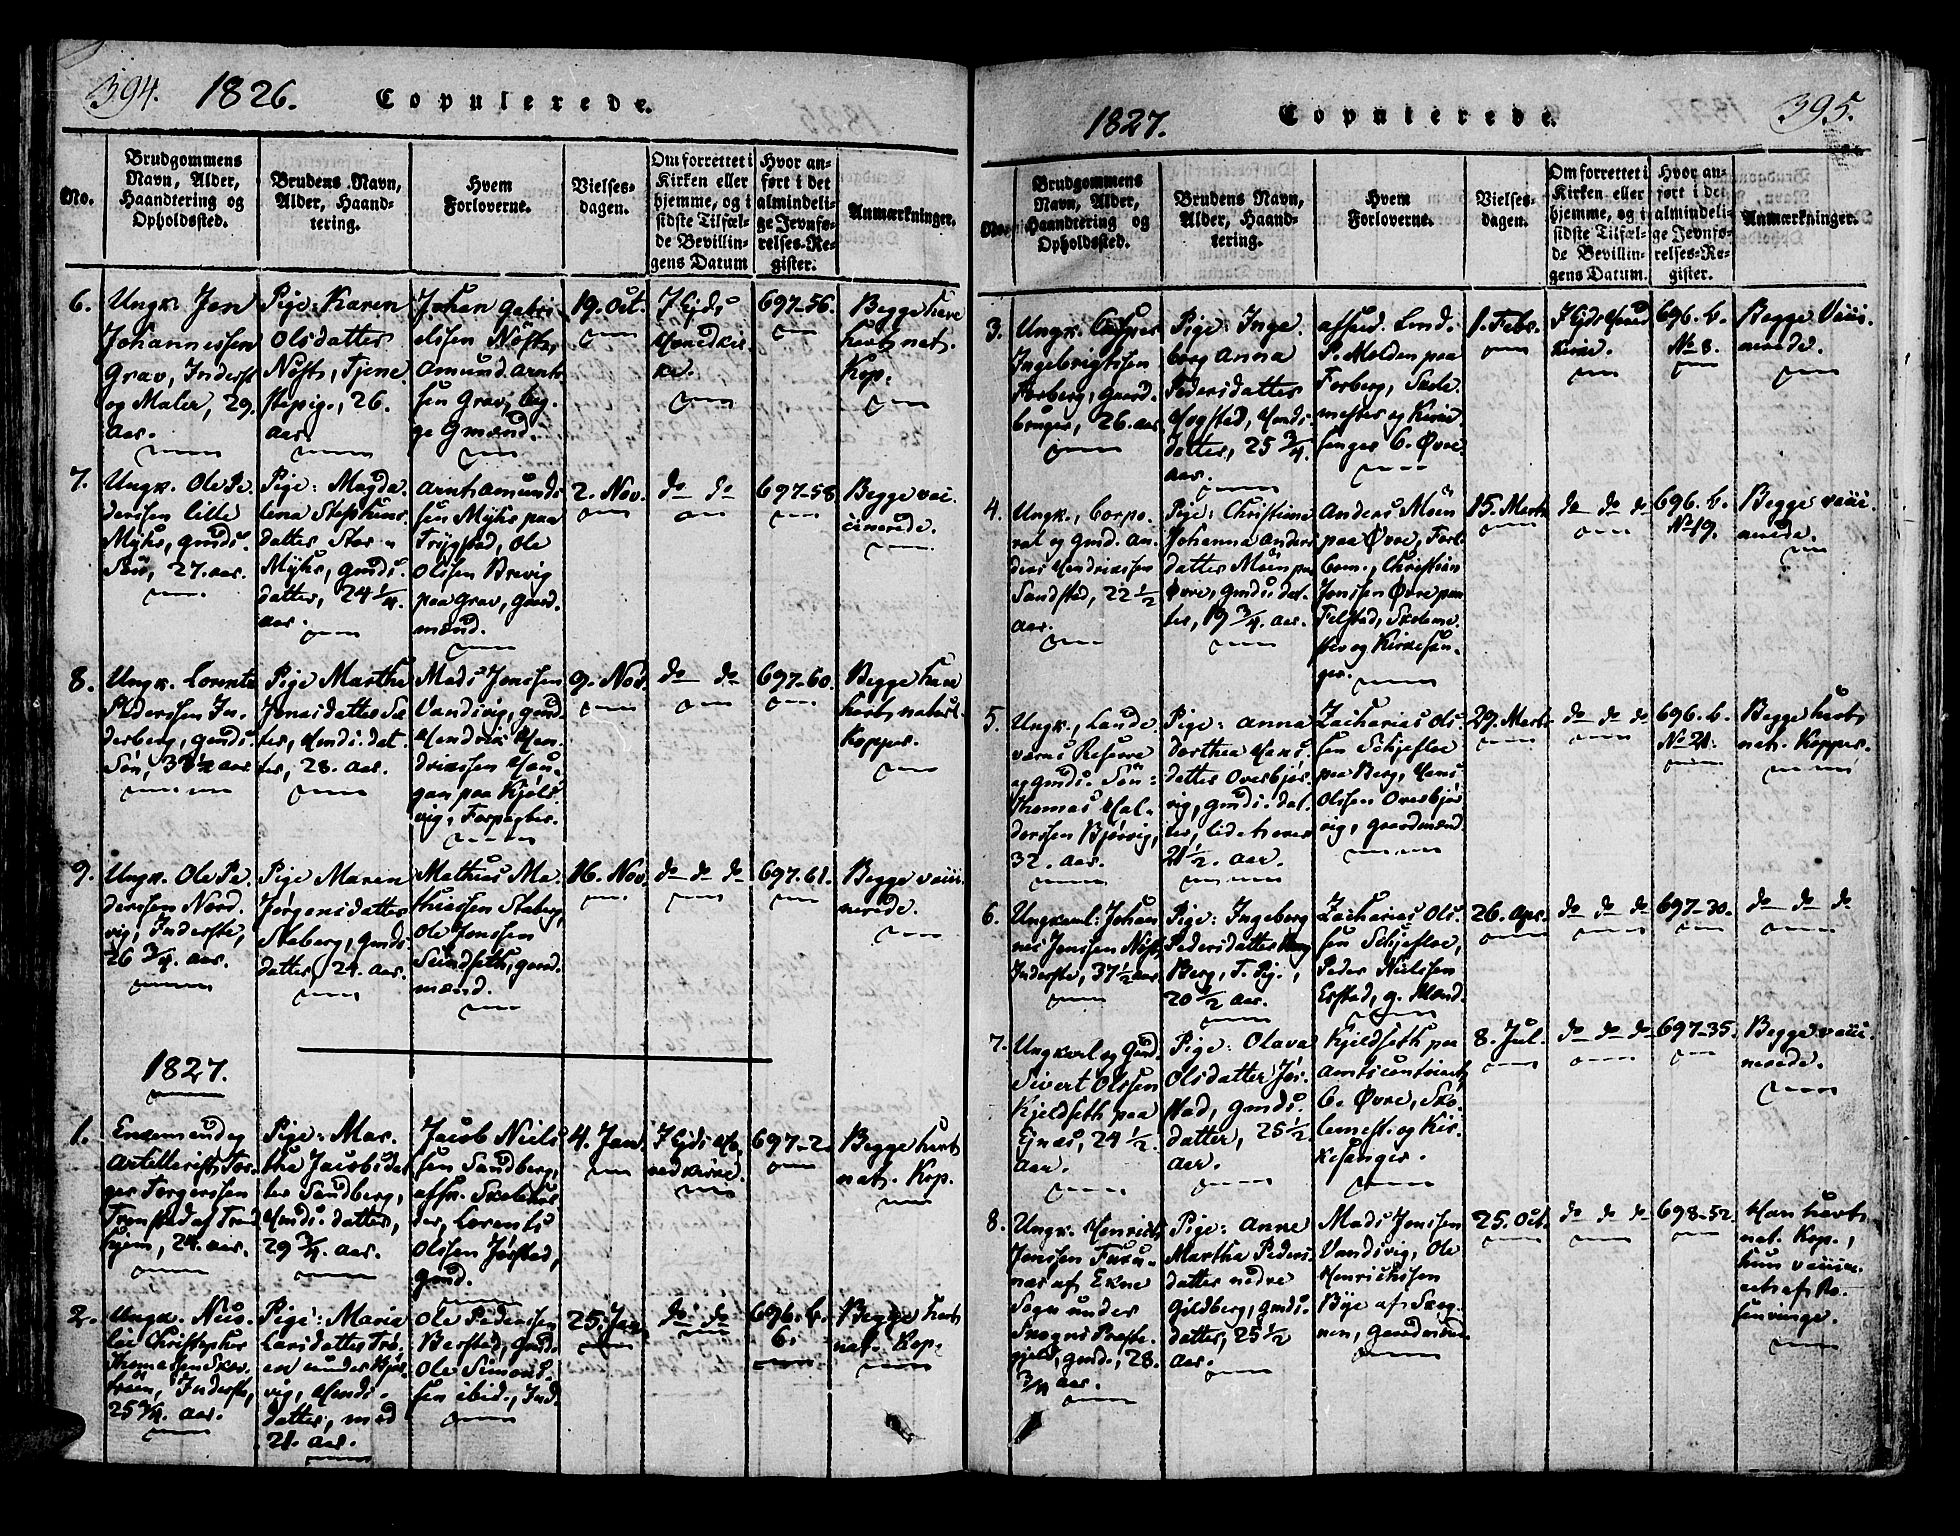 394. 1826. Copulerede.
No.
Brudgommens
Navn, Alder,
Haandtering og
Opholdssted.
Brudens Navn,
Alder, Haand-
tering.
Hvem
Forloverne.
Vielses-
dagen.
Om forrettet i
Kirken eller
hjemme, og i
sidste Tilfæl-
de Bevillin-
gens Datum
Hvor an-
ført i det
almindeli-
ge Jevnfø-
relses-Re-
gister.
Anmærkninger.
6.
Ungk. Jon
Johannessen
Grav, Inderst
og Maler, 29.
Aar.
Pige: Karen
Olsdatter
Nøsth, Tjene
stepig., 26.
Aar.
Johan Gabri
elssen Nøsth,
Amund Arnt
sen Grav, beg
ge Gmænd.
19. Oct.
I Ejds
Hovedkir
ke.
697-56.
Begge have
havt nat.
Kop.
7.
Ungk. Ole Pe
derssen lille
Myhr, Gmds.
Søn, 27. Aar.
Pige: Magda
lena Stephens
datter Stor
Myhr, Gmds.
datter, 24 1/4.
Aar.
Arnt Amund
sen Myhr paa
Trygstad, Ole
Olssen Brevig
paa Grav, Gaard
mænd.
2. Nov.
do do
697-58.
Begge vac
cinerede.
8.
Ungk. Lorents
Pederssen In
derberg, Gmds.
Søn, 33 1/2 Aar
Pige Martha
Jonasdatter Sæ
ter, Hmds. dat
ter, 28. Aar.
Mads Jonssen
Vandvig, Gmd
Hendrik Hen
drikssen Hau
gan paa Kjøls
vig, Forpagter.
9. Nov.
do do
697-60.
Begge have
havt naturl.
Kopper.
9.
Ungk. Ole Pe
derssen Nord
vig, Inderste,
26 3/4. Aar.
Pige Maren
Jørgensdatter
Staberg, Gmds
datter, 24. Aar.
Mathias Ma
thiassen Staberg,
Ole Jonssen
Sundseth, Gaard
mænd.
16. Nov.
do do do
697-61.
Begge vacci
nerede.
1827.
1.
Enkemand og
Artillerist Tor
ger Torgerssen
Tronstad af Trond
hjem, 24. Aar.
Pige: Mar
tha Jacobsdat
ter Sandberg,
Hmds. datter,
29 3/4. Aar.
Jacob Niels
sen Sandberg,
Lorents
Olssen Jørstad,
Gmd.
4. Jan.
I Ejds Ho
vedkirke.
697-2.
Begge havt
nat. Kop.
2.
Ungk. Nico
lai Christopher
Thomassen
Inderste,
25 3/4. Aar.
Pige: Maria
Larsdatter
vig, Hmds.
datter, med
21. Aar.
Ole Pederssen
Barstad, Gmd.
Ole Simons
sen ibid., Ind.
25. Jan
do do
696. b.
6.
Begge havt
nat. Kop.
1827. Copulerede. 395.
No.
Brudgommens
Navn, Alder,
Haandtering og
Opholdssted.
Brudens Navn,
Alder, Haand-
tering.
Hvem
Forloverne.
Vielses-
dagen.
Om forrettet i
Kirken eller
hjemme, og i
sidste Tilfæl-
de Bevillin-
gens Datum.
Hvor an-
ført i det
almindeli-
ge Jevnfø-
relses-Re-
gister.
Anmærkninger.
3.
Ungk. Casper
Ingebrigtssen
Forberg, Gaard
bruger, 26. Aar
Pige: Inge
borg Anna
Pedersdatter
Hogstad, Hmds.
datter, 25 3/4.
Aar.
P. Molden paa
Forberg, Skole
mester og Kirke
sanger C. Øvre.
1. Febr.
I Ejds Hoved
kirke.
696. b.
No 8.
Begge Vacci
nerede.
4.
Ungk., Corpo
ral og Gmd. An
ders Hendrikssen
Sandstad, 22 1/2
Aar.
Pige: Christiane
Johanna Anders
datter Moen paa
Øvre, Gmds. dat
ter, 19 3/4. Aar.
Anders Moen
paa Øvre, Forl
Christian
Jonssen Øvre paa
Felstad, Skoleme.
ster og Kirkesan
ger.
15. Marts
do do do
696. b.
No 19.
Begge vacci
nerede.
5.
Ungk., Lande
værns Reserve
og Gmds. Søn
Thomas Hal
dorssen Bjørvig,
32. Aar.
Pige: Anna
Dorthea Hans
datter Overbjør
vig, Gmds. dat
ter, lidt over
21 1/2. Aar.
Zacharias Ols
sen Schjefloe
paa Berg, Hans
Olssen Overbjør
vig, Gaardmænd
29. Marts
do do do
696. b.
No 21.
Begge havt
nat. Kopper.
6.
Ungkarl: Johan
nes Jonssen Nøst,
Inderste, 37 1/2 Aar
Pige: Ingeborg
Pedersdatter
Berg, T. Pig.,
20 1/2 Aar.
Zacharias Ols
sen Schjefloe,
Peder Nielssen
Elstad, G. Mænd.
26. Apr.
do do do
697-30.
do do do
7.
Ungkarl og Gmd.
Sivert Olssen
Kjeldseth paa
Ejnæs, 24 1/2.
Aar.
Pige: Olava
Olsdatter Jør
stad, Gmds.
datter, 25 1/2
Aar.
Kjeldseth paa
C. Øvre, Sko
lemest. og Kir
kesanger.
8. Jul.
do do do
697-35.
Begge vacci
nerede.
8.
Ungk. Henrich
Jonssen Furu
næs af Ekne
Sogn under
Skogns Præste
gjeld, Gmd., 28.
3/4 Aar.
Pige: Anne
Martha Peders
datter nedre
Gildberg, Gmds.
datter, 25 1/2
Aar.
Mads Jonssen
Vandvig, Ole
Henrichssen
Bye af Skog
nen, Gaardmænd
25. Oct.
do do do
698-52.
Han havt
nat. Kop.,
hun vaccin
eret af Ro
senvinge.